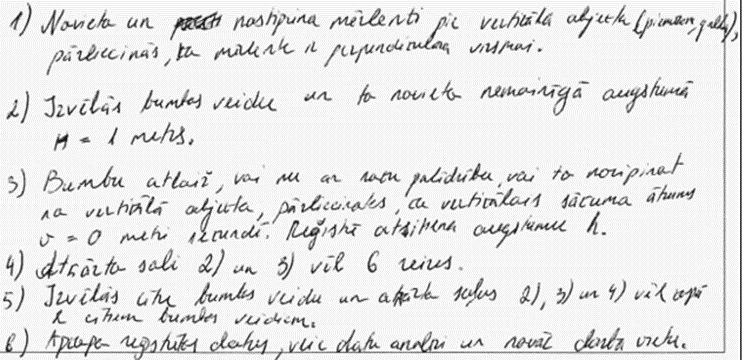 1) Novieto un nostiprina mērlenti pie vertikāla objekta (piemēram, galda),
pārliecinās, ka mērlente ir perpendikulāra virsmai.
2) Izvēlās bumbas veidu un to novieto nemainīgā augstumā
H = 1 metrs.
3) Bumbu atlaiž, vai nu ar roku palīdzību, vai to noripinot
no vertikālā objekta, pārliecinoties, ka vertikālais sākuma ātrums
v = 0 metri sekundē. Reģistrē atsitiena augstumu h.
4) Atkārto soli 2) un 3) vēl 6 reizes.
5) Izvēlās citu bumbas veidu un atkārto soļus 2), 3) un 4) vēl
ar citiem bumbas veidiem.
6) Apkopo reģistrētos datus, veic datu analīzi un novāc darba vietu.